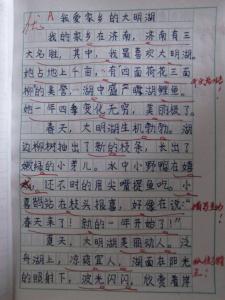 优 A 我爱家乡的大明湖
我的家乡在济南，济南有三
大名胜，其中，我最喜欢大明湖。
她占地上千亩，有四面荷花三面
柳的美誉，湖中盛产露湖鲤鱼。
她一年四季变化无穷，美丽极了。
春天，大明湖生机勃勃。湖
边柳树抽出了新的枝条，长出了
嫩绿的小芽儿。水中小野鸭在嬉
戏，还不时的用尖嘴捉鱼。小
喜鹊站在枝头报喜，好像在说：“
春天来了！新的一年开始了！”
夏天，大明湖美丽动人。泛
舟湖上，凉爽宜人，湖面在阳光
的照射下，波光闪闪，欣赏着岸